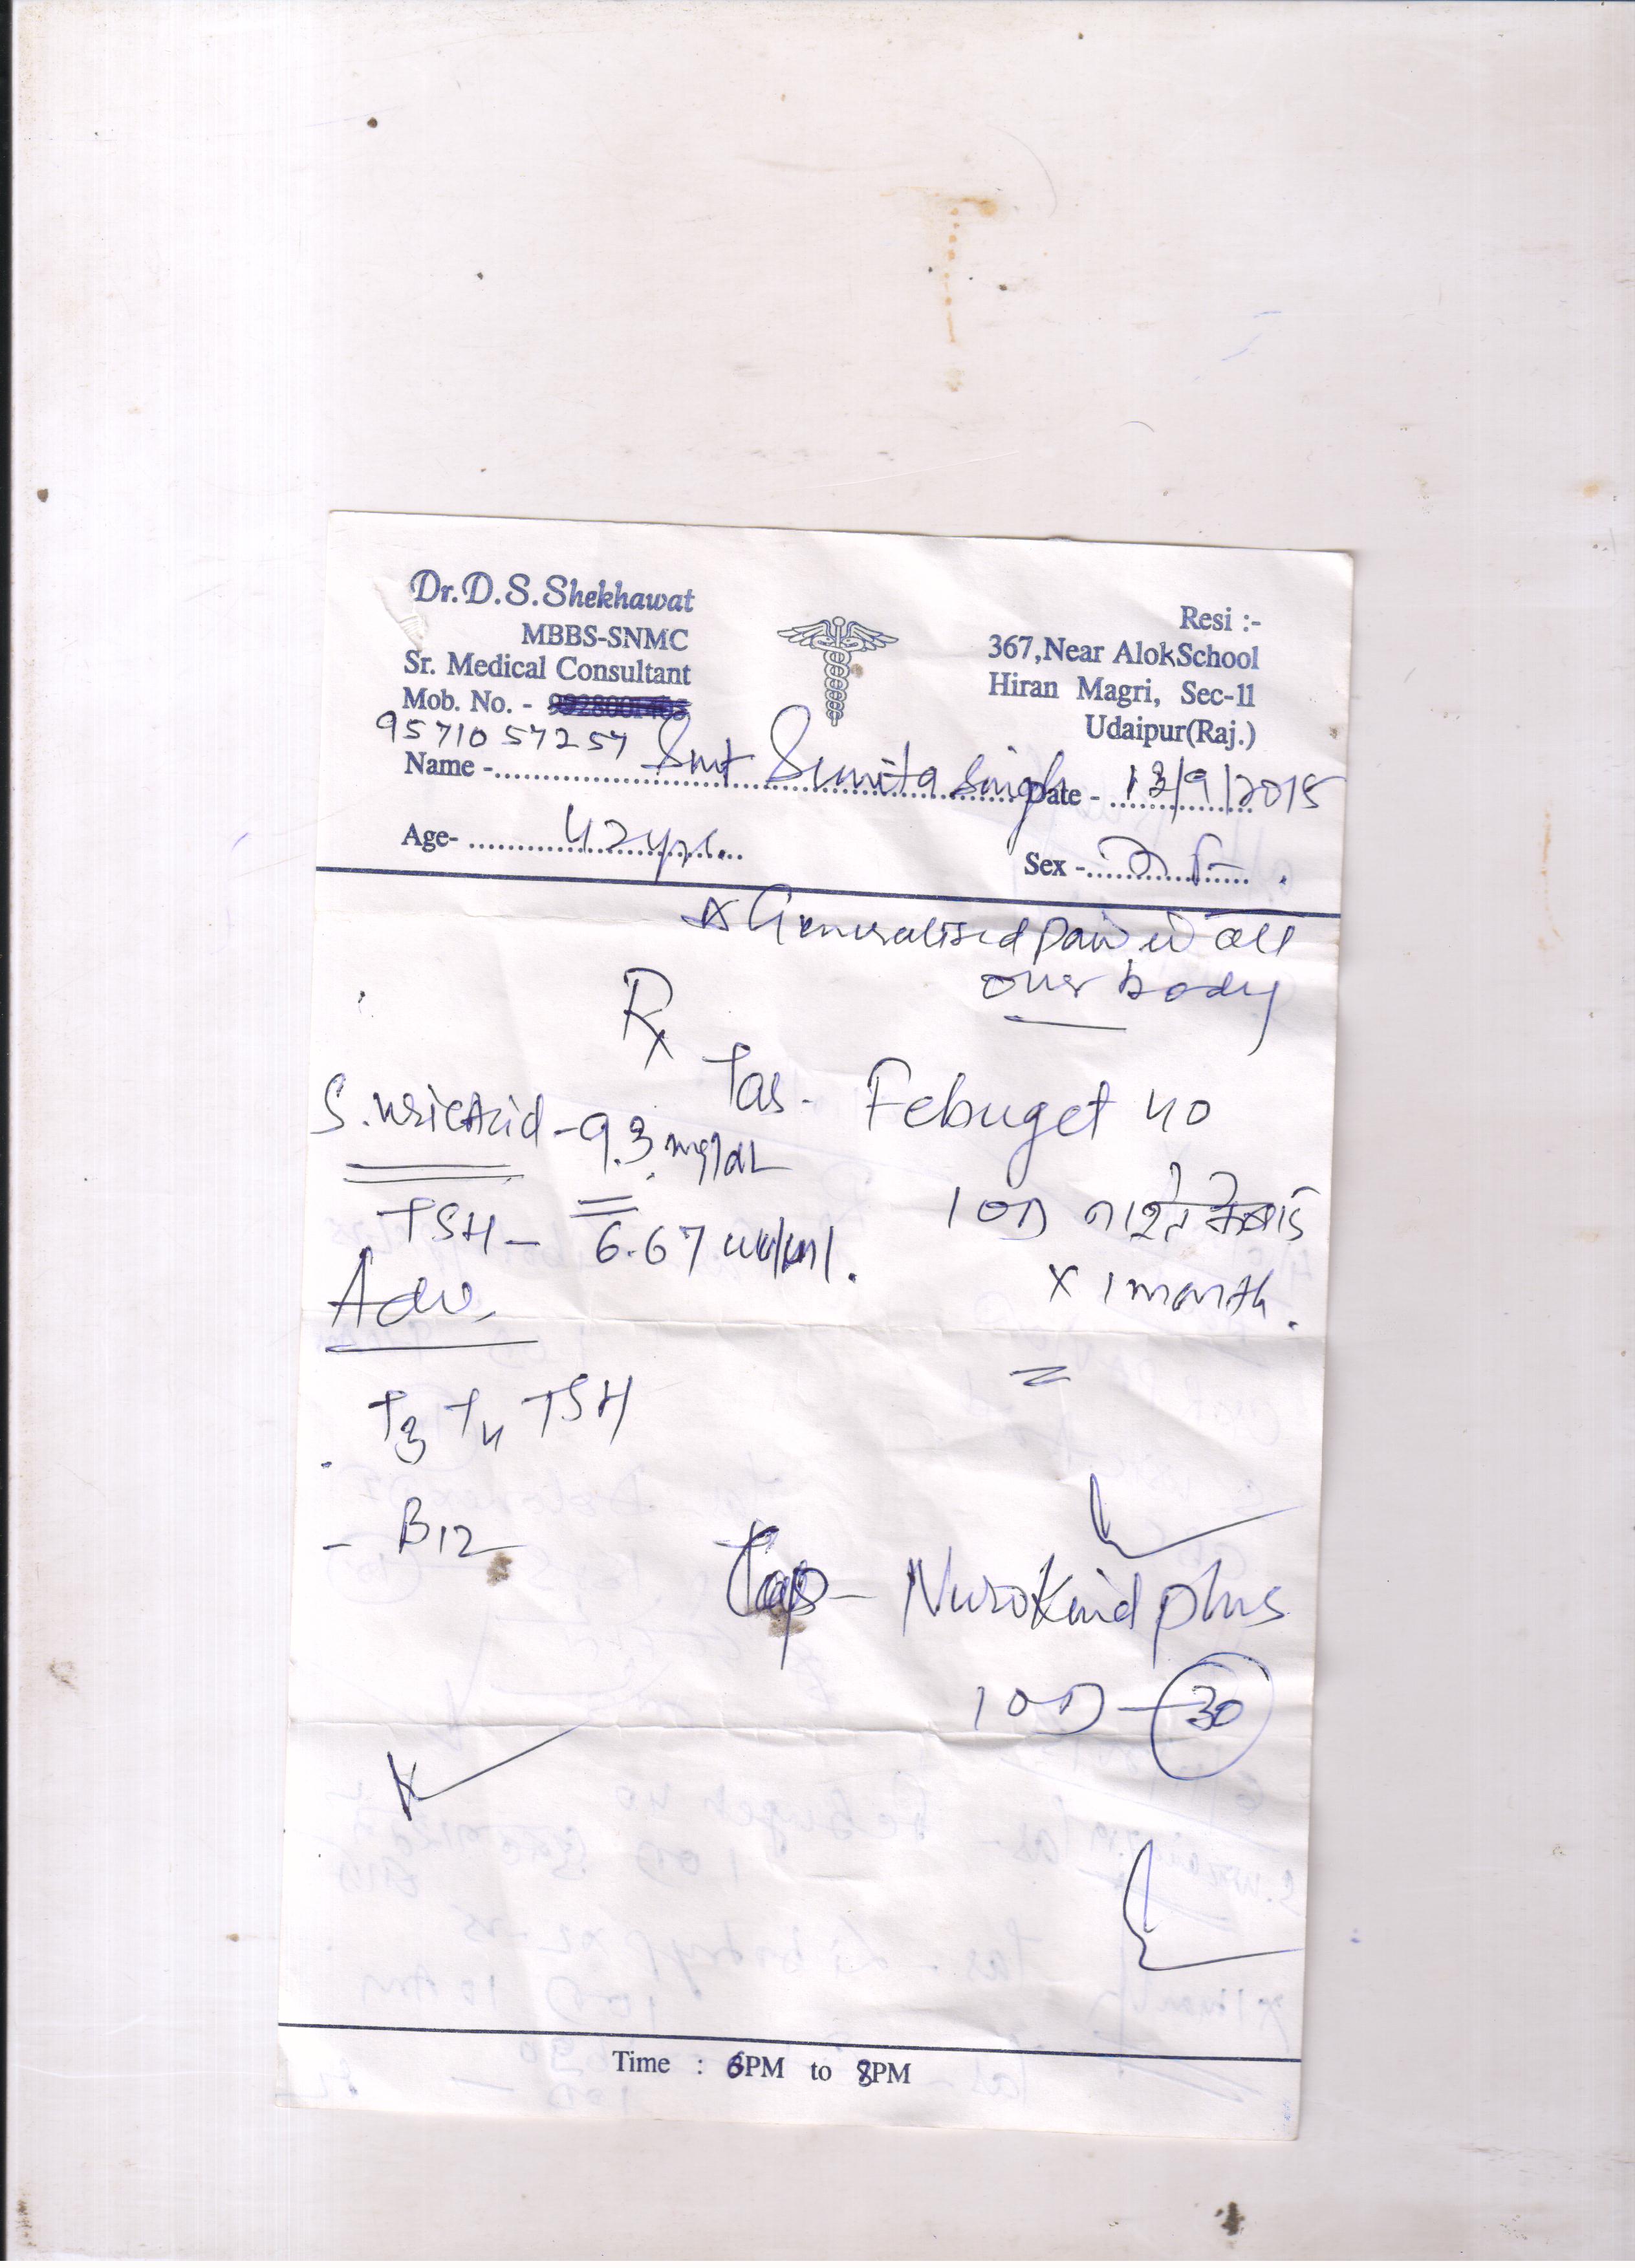 Dr. D. S. Shekhawat
MBBS-SNMC
Sr. Medical Consultant
Mob. No. -
95710 57257
Resi :-
367, Near Alok School
Hiran Magri, Sec-11
Udaipur(Raj.)
Name - Smt Sunita Singh Date - 13/9/2015
Age- 42 yrs. Sex - F
Generalised pain in all
over body
Rx
Tab - Febuget 40
1 OD
x 1 month.
S. Uric Acid - 9.3 mg/dL
TSH - 6.67 uu/ml.
Adv.
T3 T4 TSH
- B12
Cap - Nurokind plus
1 OD - 30
Time : 6PM to 8PM